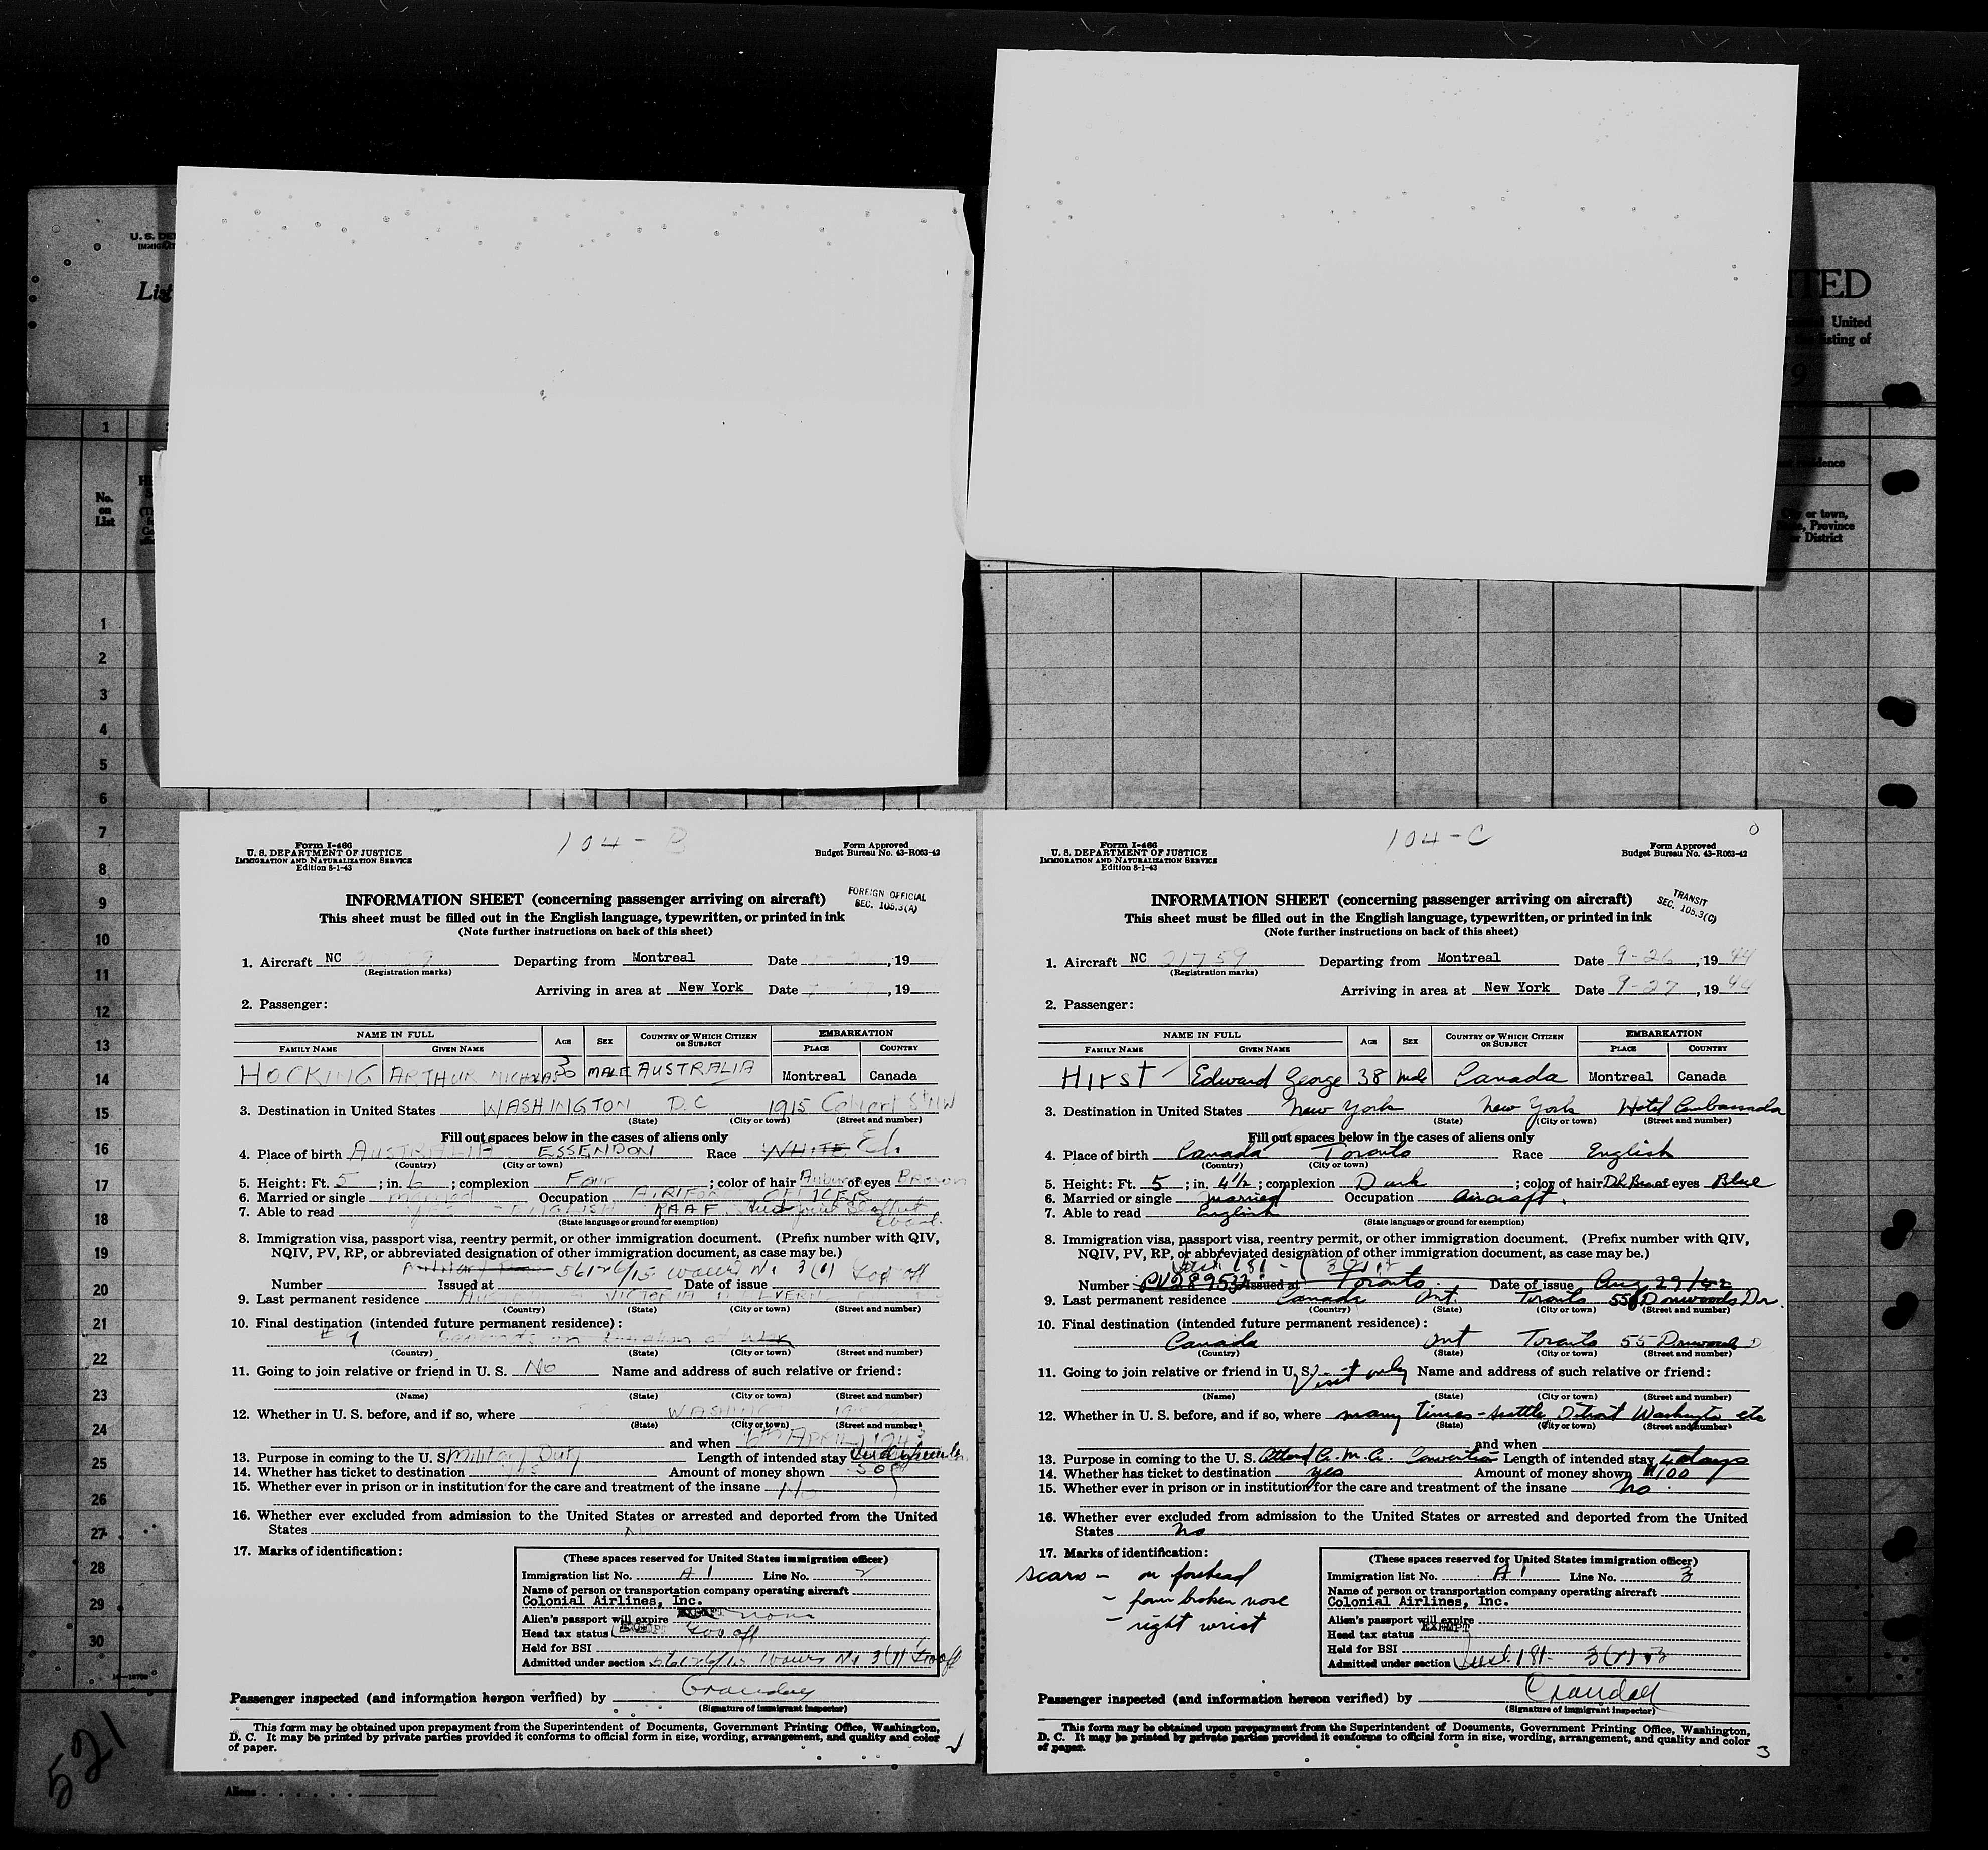 U. S. DE
List
ITED
United
isting of
9
1
No.
on
List
residence
City or town,
Province
or District
1
2
3
4
5
6
7
8
9
10
11
12
13
14
15
16
17
18
19
20
21
22
23
24
25
26
27
28
29
30
521
Aliens
104 - B
Form I-466
U. S. DEPARTMENT OF JUSTICE
IMMIGRATION AND NATURALIZATION SERVICE
Edition 8-1-43
Form Approved
Budget Bureau No. 43-R063-42
FOREIGN OFFICIAL
SEC. 105.3(A)
INFORMATION SHEET (concerning passenger arriving on aircraft)
This sheet must be filled out in the English language, typewritten, or printed in ink
(Note further instructions on back of this sheet)
1. Aircraft NC Departing from Montreal Date , 19
(Registration marks)
Arriving in area at New York Date , 19
2. Passenger:
NAME IN FULL AGE SEX COUNTRY OF WHICH CITIZEN OR SUBJECT EMBARKATION
FAMILY NAME GIVEN NAME PLACE COUNTRY
HOCKING ARTHUR NICHOLAS 30 MALE AUSTRALIA Montreal Canada
3. Destination in United States WASHINGTON D.C 1915 Calvert St NW
(State) (City or town) (Street and number)
Fill out spaces below in the cases of aliens only
4. Place of birth AUSTRALIA ESSENDON Race WHITE
(Country) (City or town)
5. Height: Ft. 5 ; in. 6 ; complexion Fair ; color of hair Auburn of eyes Brown
6. Married or single married Occupation AIRFORCE OFFICER
7. Able to read Yes - ENGLISH RAAF
(State language or ground for exemption)
8. Immigration visa, passport visa, reentry permit, or other immigration document. (Prefix number with QIV,
NQIV, PV, RP, or abbreviated designation of other immigration document, as case may be.)
56126/15 3(1)
Number Issued at Date of issue
9. Last permanent residence VICTORIA MALVERN
(Country) (State) (City or town) (Street and number)
10. Final destination (intended future permanent residence):
# 9 Depends on duration of war
(Country) (State) (City or town) (Street and number)
11. Going to join relative or friend in U. S. No Name and address of such relative or friend:
(Name) (State) (City or town) (Street and number)
12. Whether in U. S. before, and if so, where WASHINGTON
(State) (City or town) (Street and number)
and when APRIL 1943
13. Purpose in coming to the U. S. Military Duty Length of intended stay
14. Whether has ticket to destination Yes Amount of money shown 50
15. Whether ever in prison or in institution for the care and treatment of the insane No
16. Whether ever excluded from admission to the United States or arrested and deported from the United
States No
17. Marks of identification:
(These spaces reserved for United States immigration officer)
Immigration list No. A 1 Line No. 2
Name of person or transportation company operating aircraft
Colonial Airlines, Inc.
Alien's passport will expire EXEMPT none
Head tax status EXEMPT
Held for BSI
Admitted under section 56126/15 3(1)
Passenger inspected (and information hereon verified) by Crandall
(Signature of immigrant inspector)
This form may be obtained upon prepayment from the Superintendent of Documents, Government Printing Office, Washington,
D. C. It may be printed by private parties provided it conforms to official form in size, wording, arrangement, and quality and color
of paper.
104-C
Form I-466
U. S. DEPARTMENT OF JUSTICE
IMMIGRATION AND NATURALIZATION SERVICE
Edition 8-1-43
Form Approved
Budget Bureau No. 43-R063-42
TRANSIT
SEC. 105.3(C)
INFORMATION SHEET (concerning passenger arriving on aircraft)
This sheet must be filled out in the English language, typewritten, or printed in ink
(Note further instructions on back of this sheet)
1. Aircraft NC 21759 Departing from Montreal Date 9-26, 19 44
(Registration marks)
Arriving in area at New York Date 9-27, 19 44
2. Passenger:
NAME IN FULL AGE SEX COUNTRY OF WHICH CITIZEN OR SUBJECT EMBARKATION
FAMILY NAME GIVEN NAME PLACE COUNTRY
HIrST Edward George 38 male Canada Montreal Canada
3. Destination in United States New York New York Hotel Ambassador
(State) (City or town) (Street and number)
Fill out spaces below in the cases of aliens only
4. Place of birth Canada Toronto Race English
(Country) (City or town)
5. Height: Ft. 5 ; in. 4½ ; complexion Dark ; color of hair Dk Brn of eyes Blue
6. Married or single married Occupation aircraft.
7. Able to read English
(State language or ground for exemption)
8. Immigration visa, passport visa, reentry permit, or other immigration document. (Prefix number with QIV,
NQIV, PV, RP, or abbreviated designation of other immigration document, as case may be.)
181 -
Number PV28953 Issued at Toronto Date of issue Aug 29/42
9. Last permanent residence Canada Ont. Toronto 55 Donwoods Dr.
(Country) (State) (City or town) (Street and number)
10. Final destination (intended future permanent residence):
Canada Ont Toronto 55 Donwoods D
(Country) (State) (City or town) (Street and number)
11. Going to join relative or friend in U. S. Visit only Name and address of such relative or friend:
(Name) (State) (City or town) (Street and number)
12. Whether in U. S. before, and if so, where many times - Seattle, Detroit Washington etc
(State) (City or town) (Street and number)
and when
13. Purpose in coming to the U. S. Attend A. M. A. Convention Length of intended stay 4 days
14. Whether has ticket to destination yes Amount of money shown $100
15. Whether ever in prison or in institution for the care and treatment of the insane no.
16. Whether ever excluded from admission to the United States or arrested and deported from the United
States no
17. Marks of identification:
scars - on forehead
- from broken nose
- right wrist
(These spaces reserved for United States immigration officer)
Immigration list No. A 1 Line No. 3
Name of person or transportation company operating aircraft
Colonial Airlines, Inc.
Alien's passport will expire
Head tax status EXEMPT
Held for BSI
Admitted under section 181-
Passenger inspected (and information hereon verified) by Crandall
(Signature of immigrant inspector)
This form may be obtained upon prepayment from the Superintendent of Documents, Government Printing Office, Washington,
D. C. It may be printed by private parties provided it conforms to official form in size, wording, arrangement, and quality and color
of paper.
3